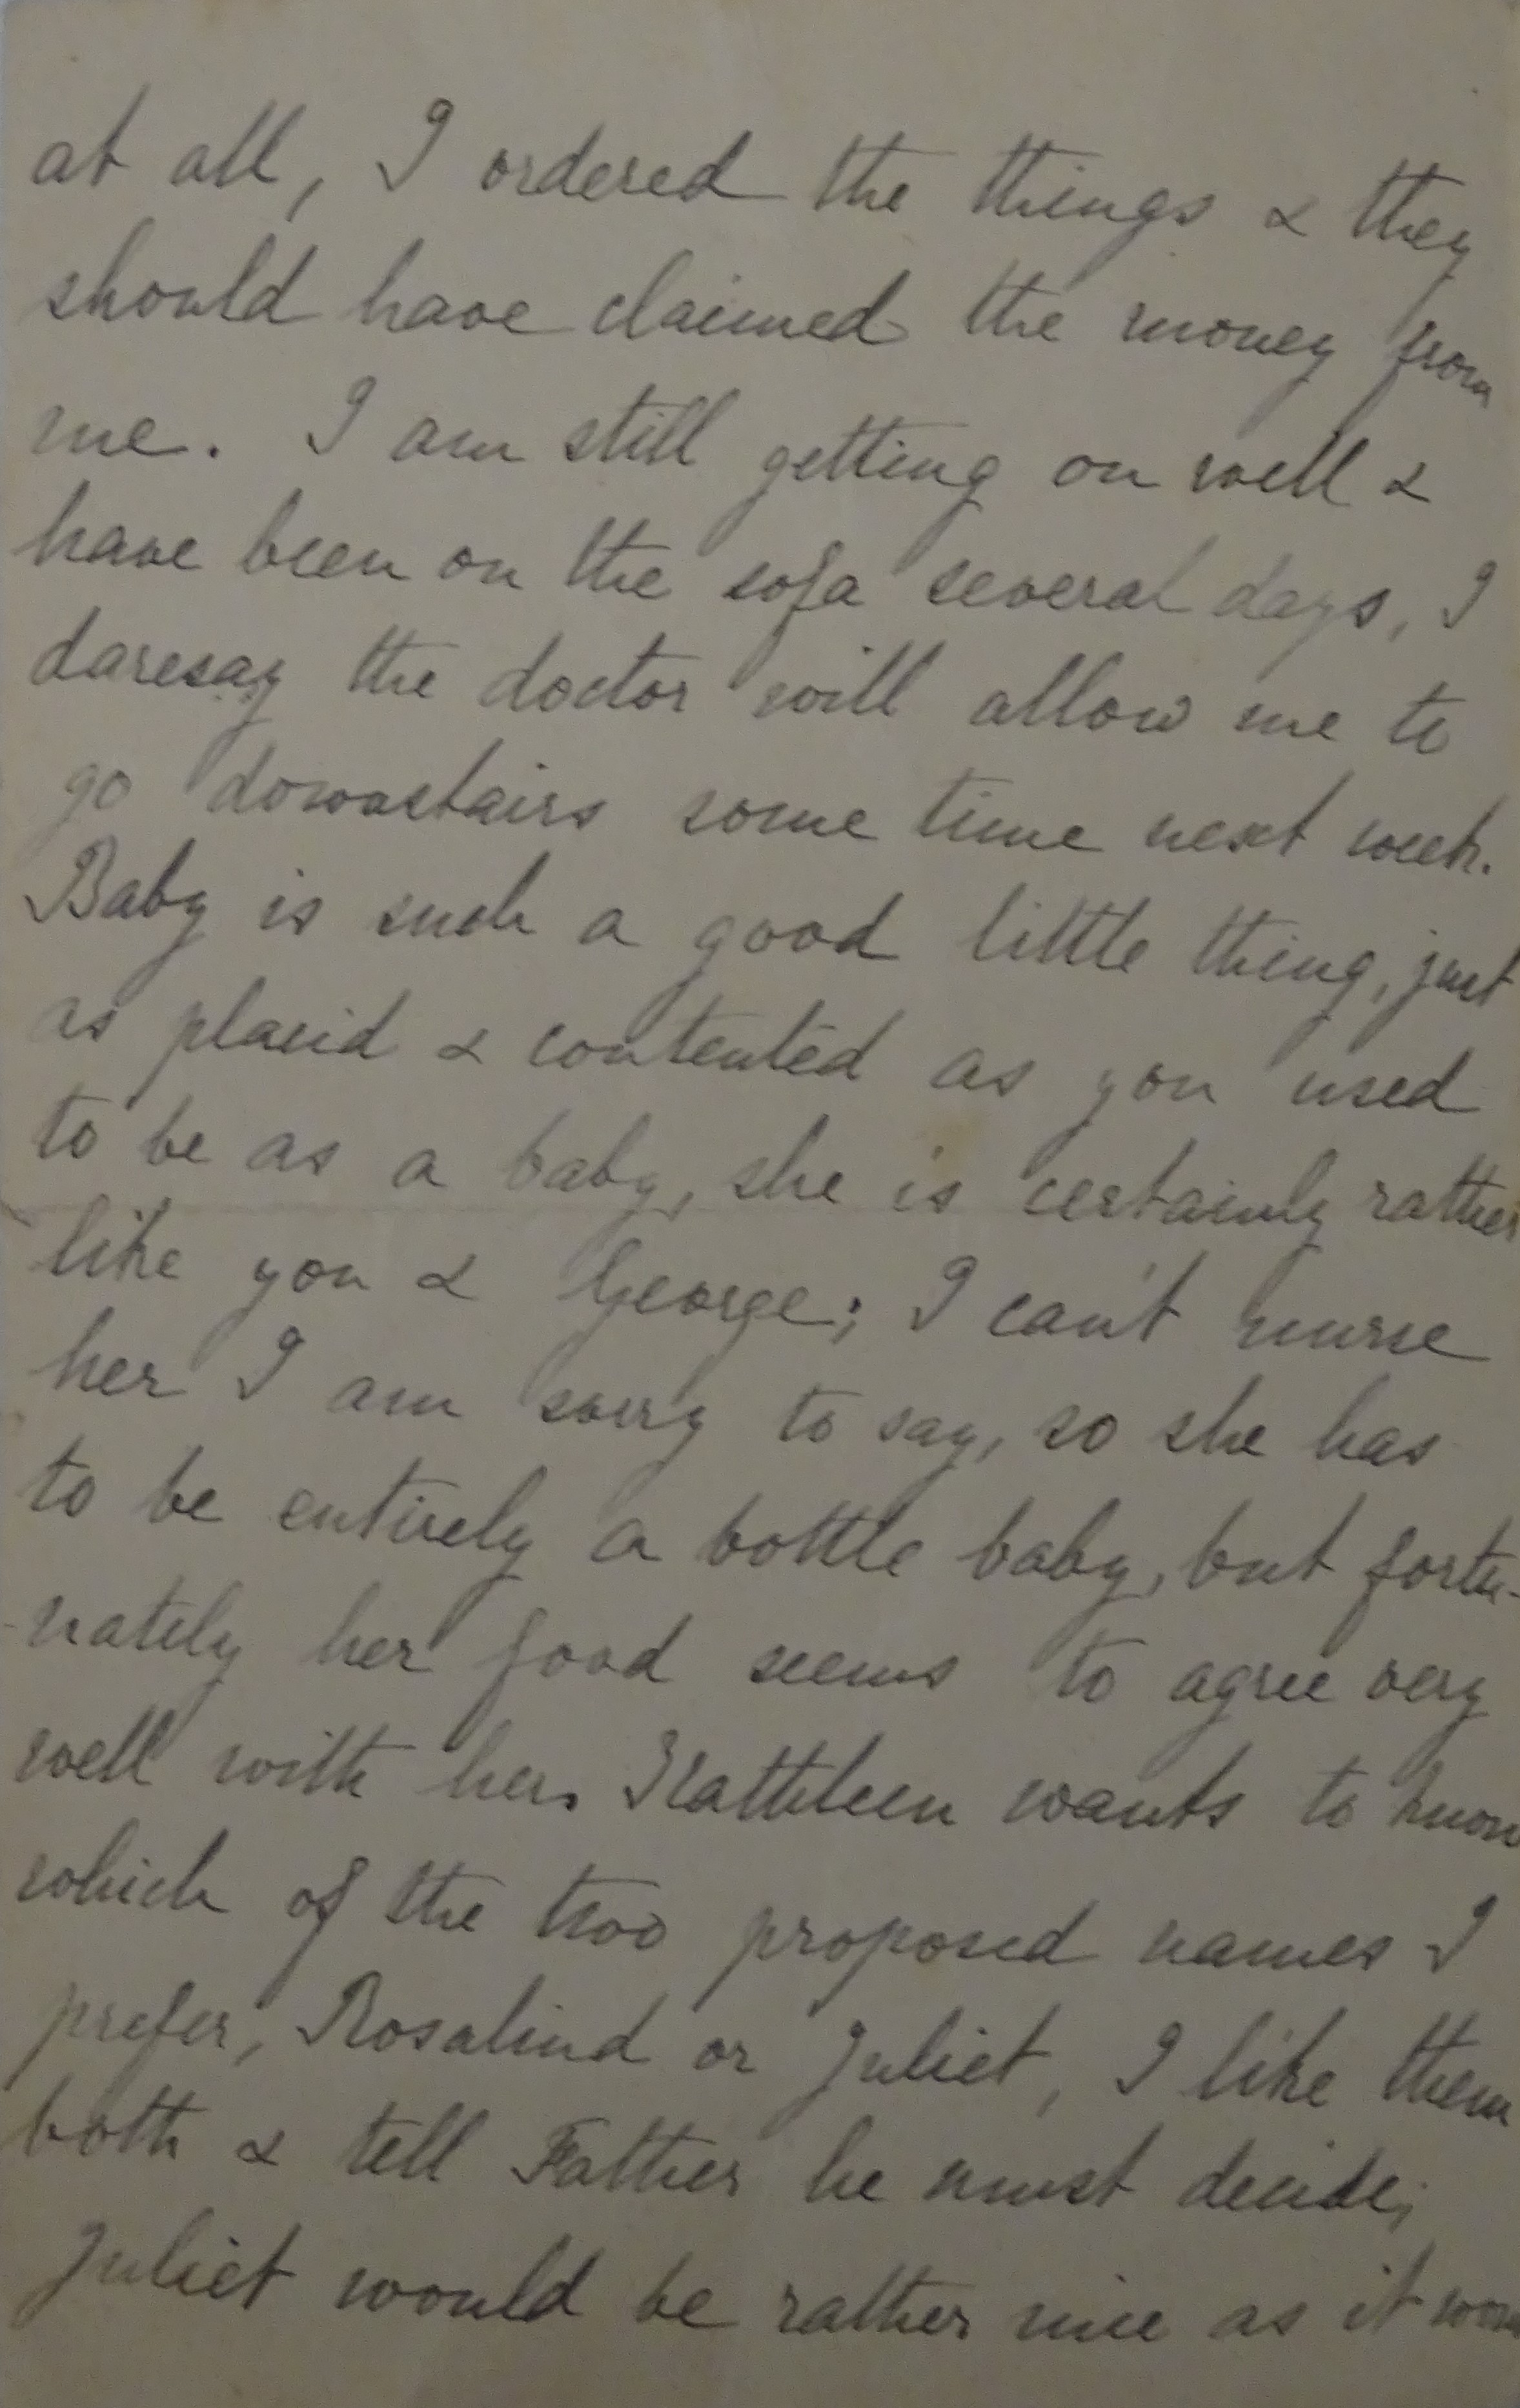 at all, I ordered the things & they
should have claimed the money from
me. I am still getting on well &
have been on the sofa several days, I
daresay the doctor will allow me to
go downstairs some time next week.
Baby is such a good little thing, just
as placid & contented as you used
to be as a baby, she is certainly rather
like you & George; I can't nurse
her I am sorry to say, so she has
to be entirely a bottle baby, but fortu-
nately her food seems to agree very
well with her. Kathleen wants to know
which of the two proposed names I
prefer, Rosalind or Juliet, I like them
both & tell Father he must decide;
Juliet would be rather nice as it